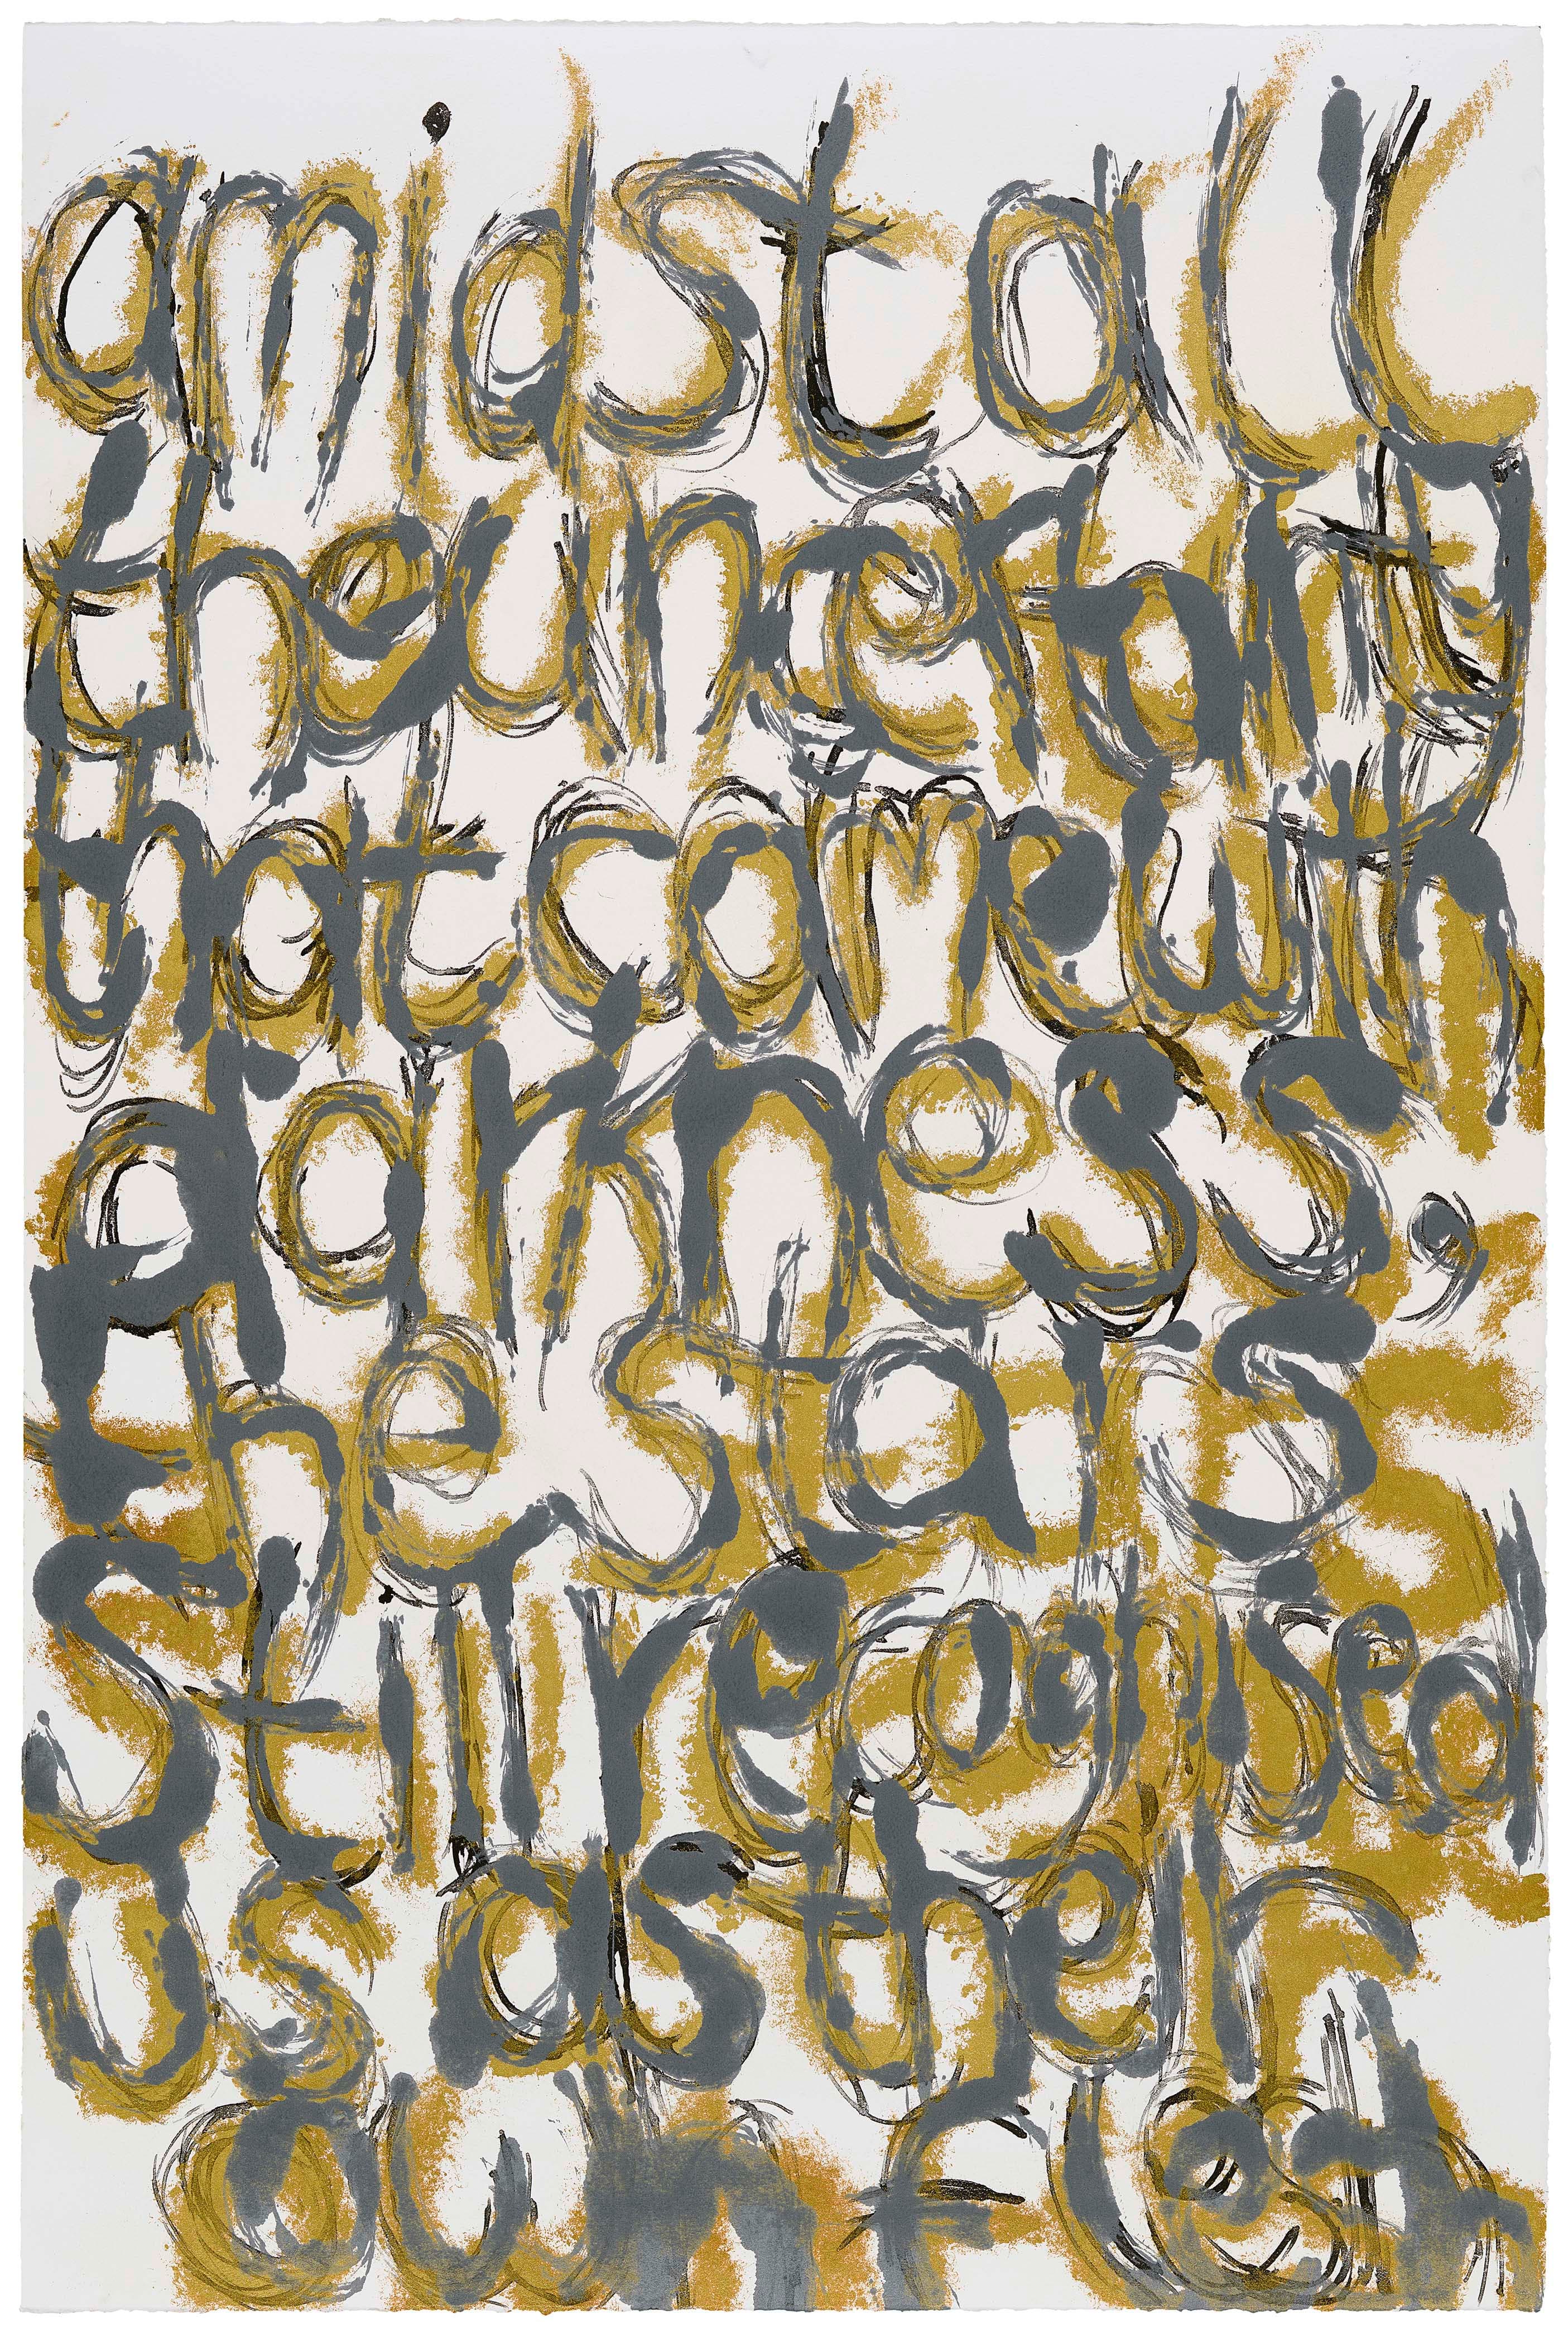 amidst all
the uncertainty
that come with
darkness,
the stars
still recognised
us as their
own flesh